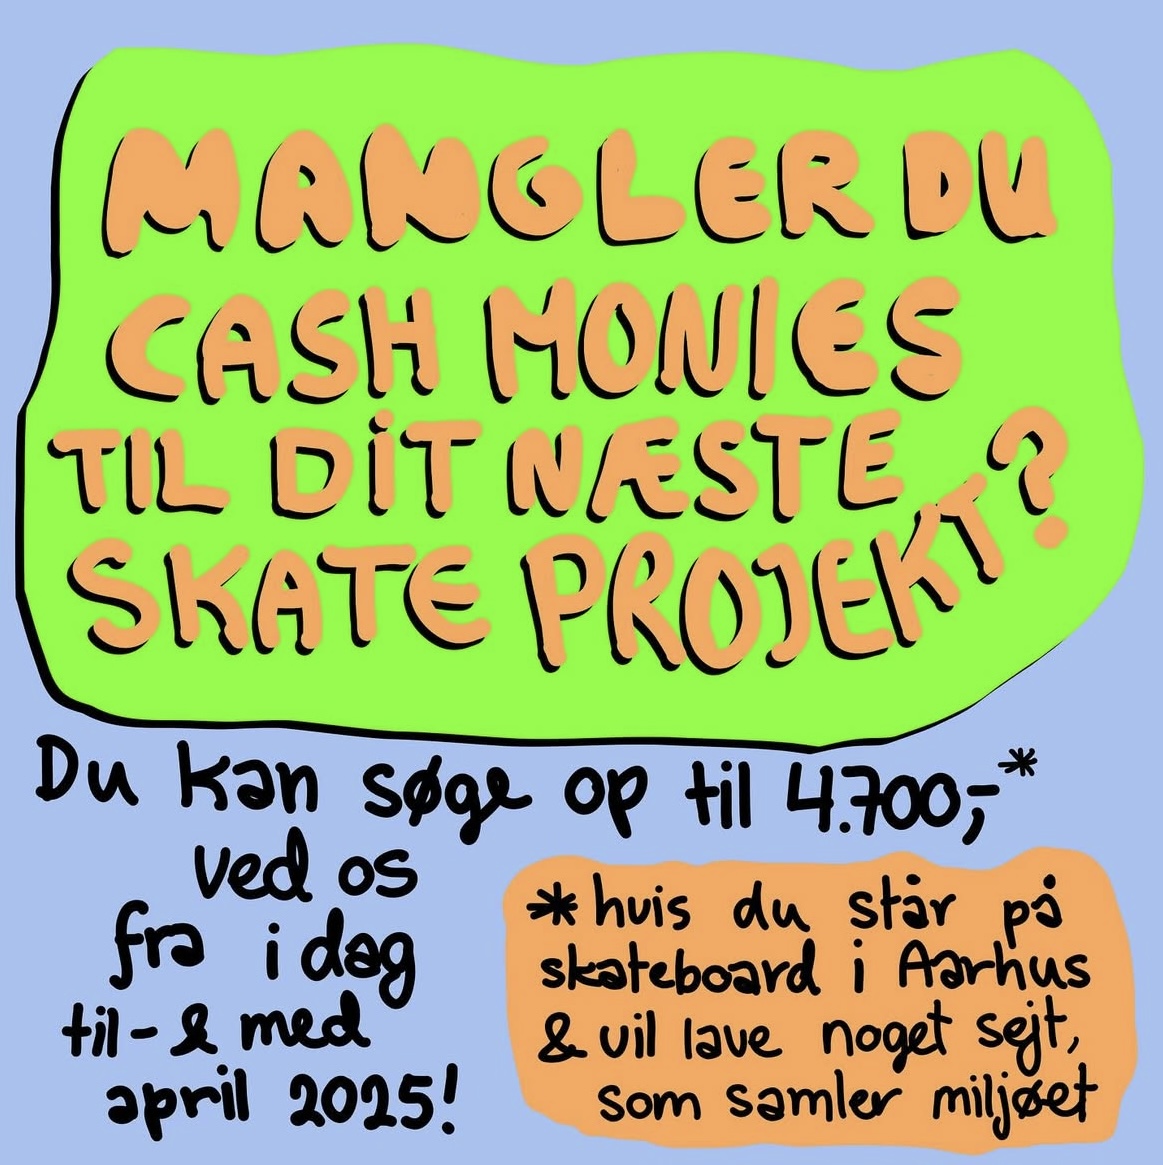 MANGLER DU
CASH MONIES
TIL DIT NÆSTE
SKATE PROJEKT?
Du kan søge op til 4.700,-*
ved os
fra i dag
til- & med
april 2025!
*hvis du står på
skateboard i Aarhus
& vil lave noget sejt,
som samler miljøet